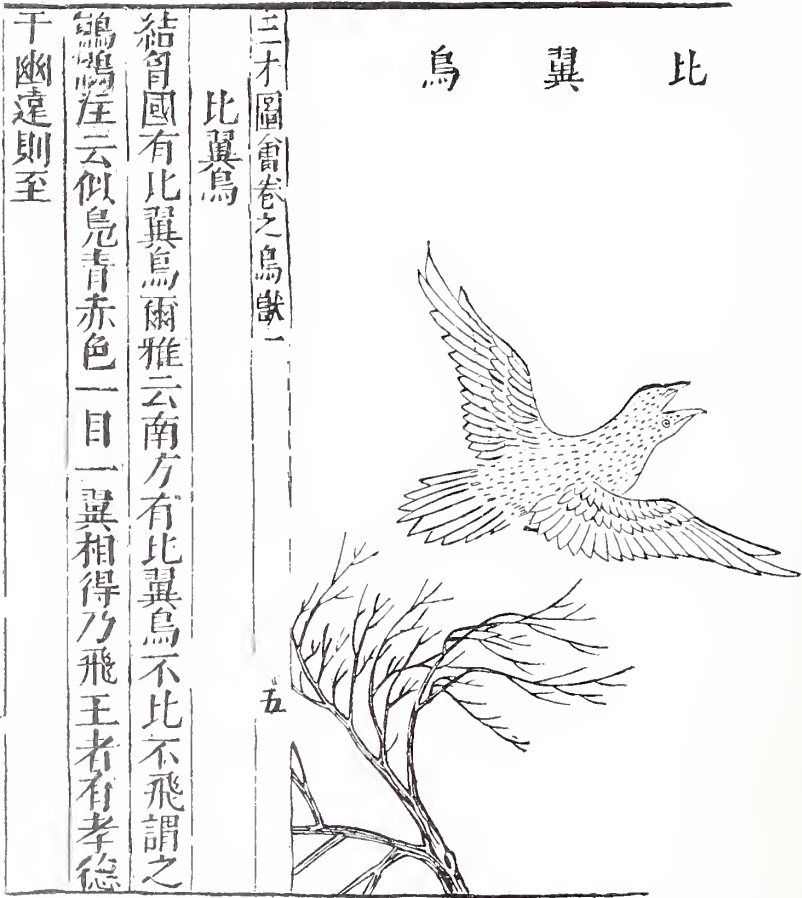 比翼鳥
三才圖會卷之鳥獸一
五
比翼鳥
結胷國有比翼鳥爾雅云南方有比翼鳥不比不飛謂之
鶼鶼注云似鳧青赤色一目一翼相得乃飛王者有孝德
于幽遠則至